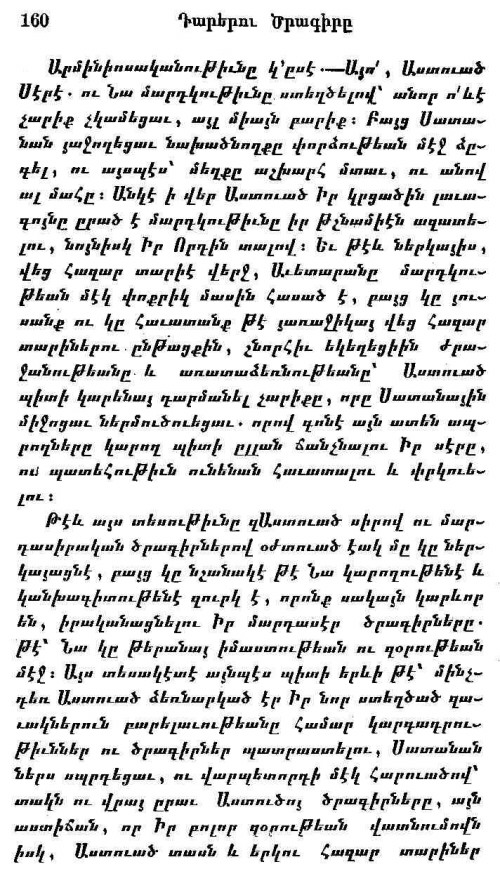 160 Դարերու Ծրագիրը
Արմինիոսականութիւնը կ՚ըսէ.—Այո՛, Աստուած
Սէրէ. ու Նա մարդկութիւնը ստեղծելով՝ անոր ո՛ևէ
չարիք չկամեցաւ, այլ միայն բարիք։ Բայց Սատա-
նան յաջողեցաւ նախածնողքը փորձութեան մէջ ձը-
գել, ու այսպէս՝ մեղքը աշխարհ մտաւ, ու անով
ալ մահը։ Անկէ ի վեր Աստուած Իր կրցածին լաւա-
գոյնը ըրած է մարդկութիւնը իր թշնամիէն ազատե-
լու, նոյնիսկ Իր Որդին տալով։ Եւ թէև ներկայիս,
վեց հազար տարիէ վերջ, Աւետարանը մարդկու-
թեան մէկ փոքրիկ մասին հասած է, բայց կը յու-
սանք ու կը հաւատանք թէ յառաջիկայ վեց հազար
տարիներու ընթացքին, շնորհիւ եկեղեցիին ժրա-
ջանութեանը և առատաձեռնութեանը՝ Աստուած
պիտի կարենայ դարմանել չարիքը, որը Սատանային
միջոցաւ ներմուծուեցաւ. որով գոնէ այն ատեն ապ-
րողները կարող պիտի ըլլան ճանչնալու Իր սէրը,
ու պատեհութիւն ունենան հաւատալու և փրկուե-
լու։
Թէև այս տեսութիւնը զԱստուած սիրով ու մար-
դասիրական ծրագիրներով օժտուած էակ մը կը ներ-
կայացնէ, բայց կը նշանակէ թէ Նա կարողութենէ և
կանխագիտութենէ զուրկ է, որոնք սակայն կարևոր
են, իրականացնելու Իր մարդասէր ծրագիրները.
թէ՝ Նա կը թերանայ իմաստութեան ու զօրութեան
մէջ։ Այս տեսակէտէ այնպէս պիտի երևի թէ՝ մինչ-
դեռ Աստուած ձեռնարկած էր Իր նոր ստեղծած զա-
ւակներուն բարելաւութեանը համար կարգադրու-
թիւններ ու ծրագիրներ պատրաստելու, Սատանան
ներս սպրդեցաւ, ու վարպետորդի մէկ հարուածով՝
տակն ու վրայ ըրաւ Աստուծոյ ծրագիրները, այն
աստիճան, որ Իր բոլոր զօրութեան վատնումովն
իսկ, Աստուած տասն և երկու հազար տարիներ